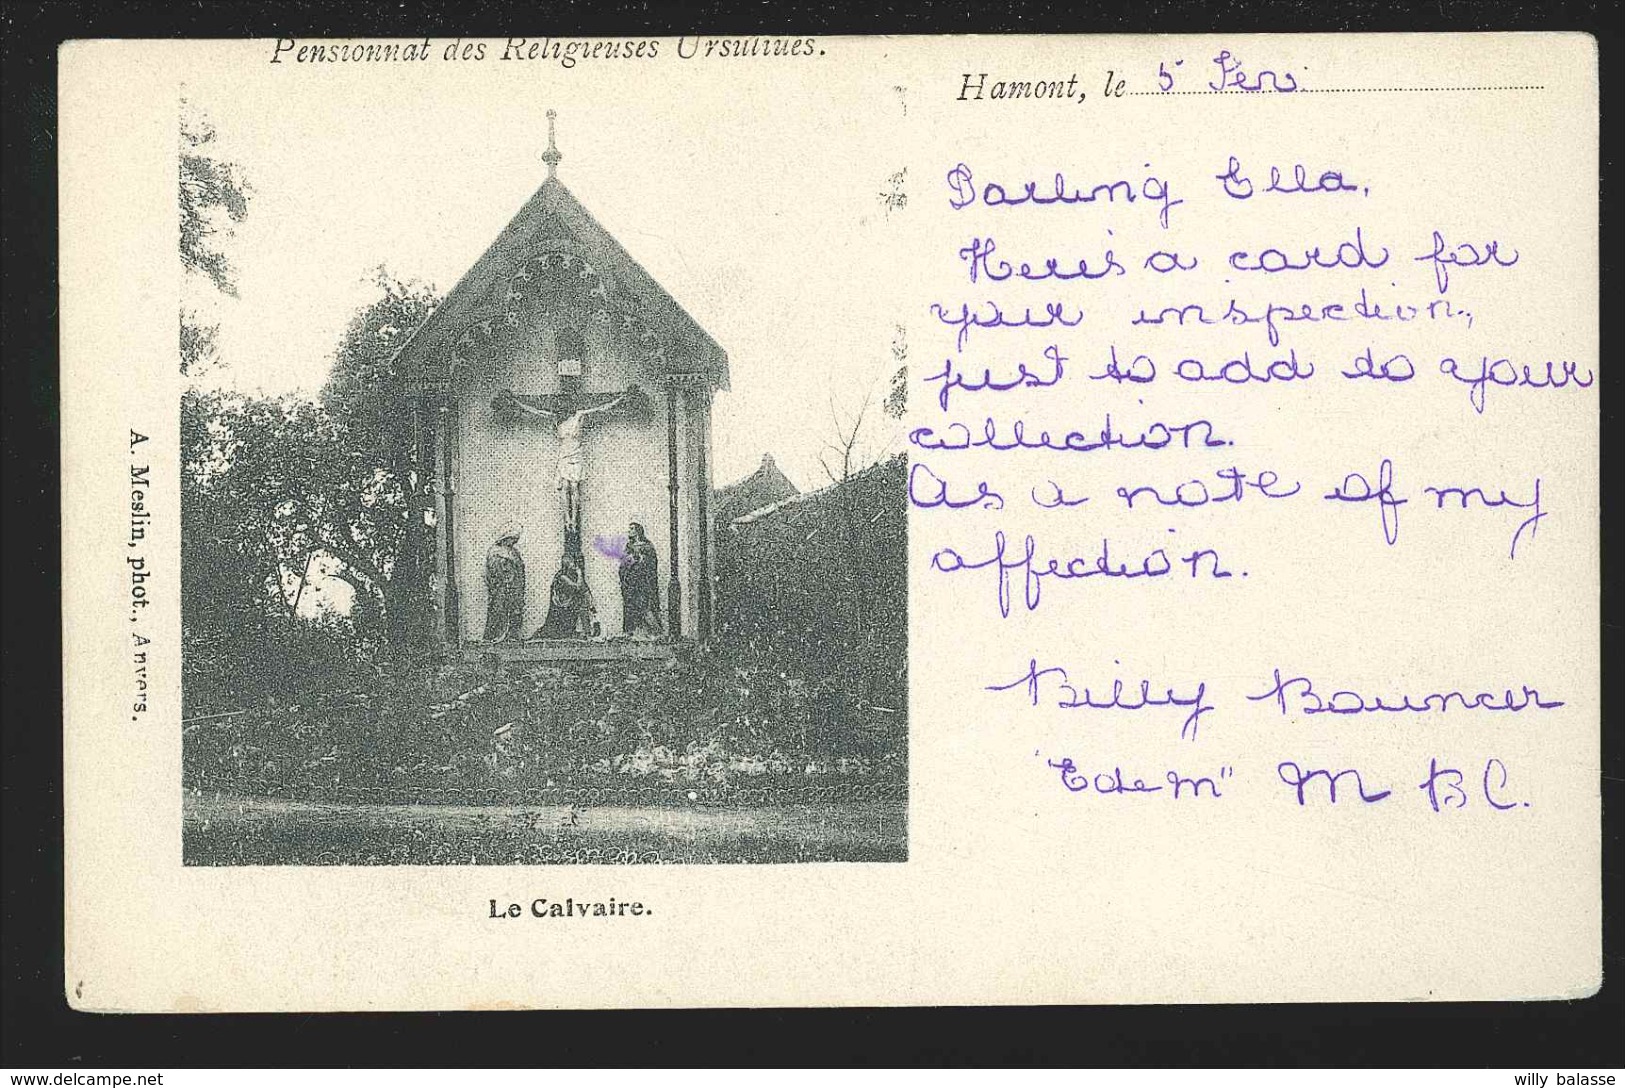 Pensionnat des Religieuses Ursulines.
Hamont, le 5
Darling Ella,
Here's a card for
your inspection,
just to add to your
collection.
As a note of my
affection.
Billy Bouncer
"Edem" M B C.
A. Meslin, phot., Anvers.
Le Calvaire.
www.delcampe.net
willy balasse